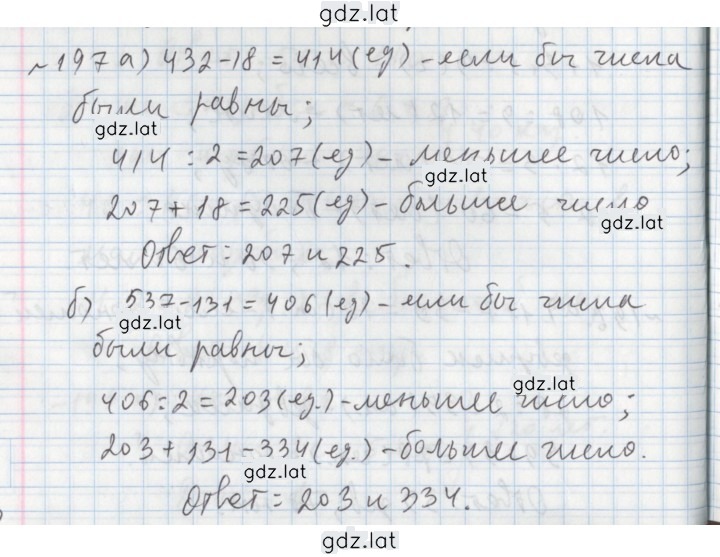 gdz.lat
№197 а) 432-18=414(ед) - если бы числа
были равны;
gdz.lat
414:2=207(ед) - меньшее число;
gdz.lat
207+18=225(ед) - большее число
gdz.lat
Ответ: 207 и 225.
б) 537-131=406(ед) - если бы числа
gdz.lat
были равны;
gdz.lat
406:2=203(ед.) - меньшее число;
203+131-334(ед.) - большее число.
gdz.lat
Ответ: 203 и 334.
gdz.lat